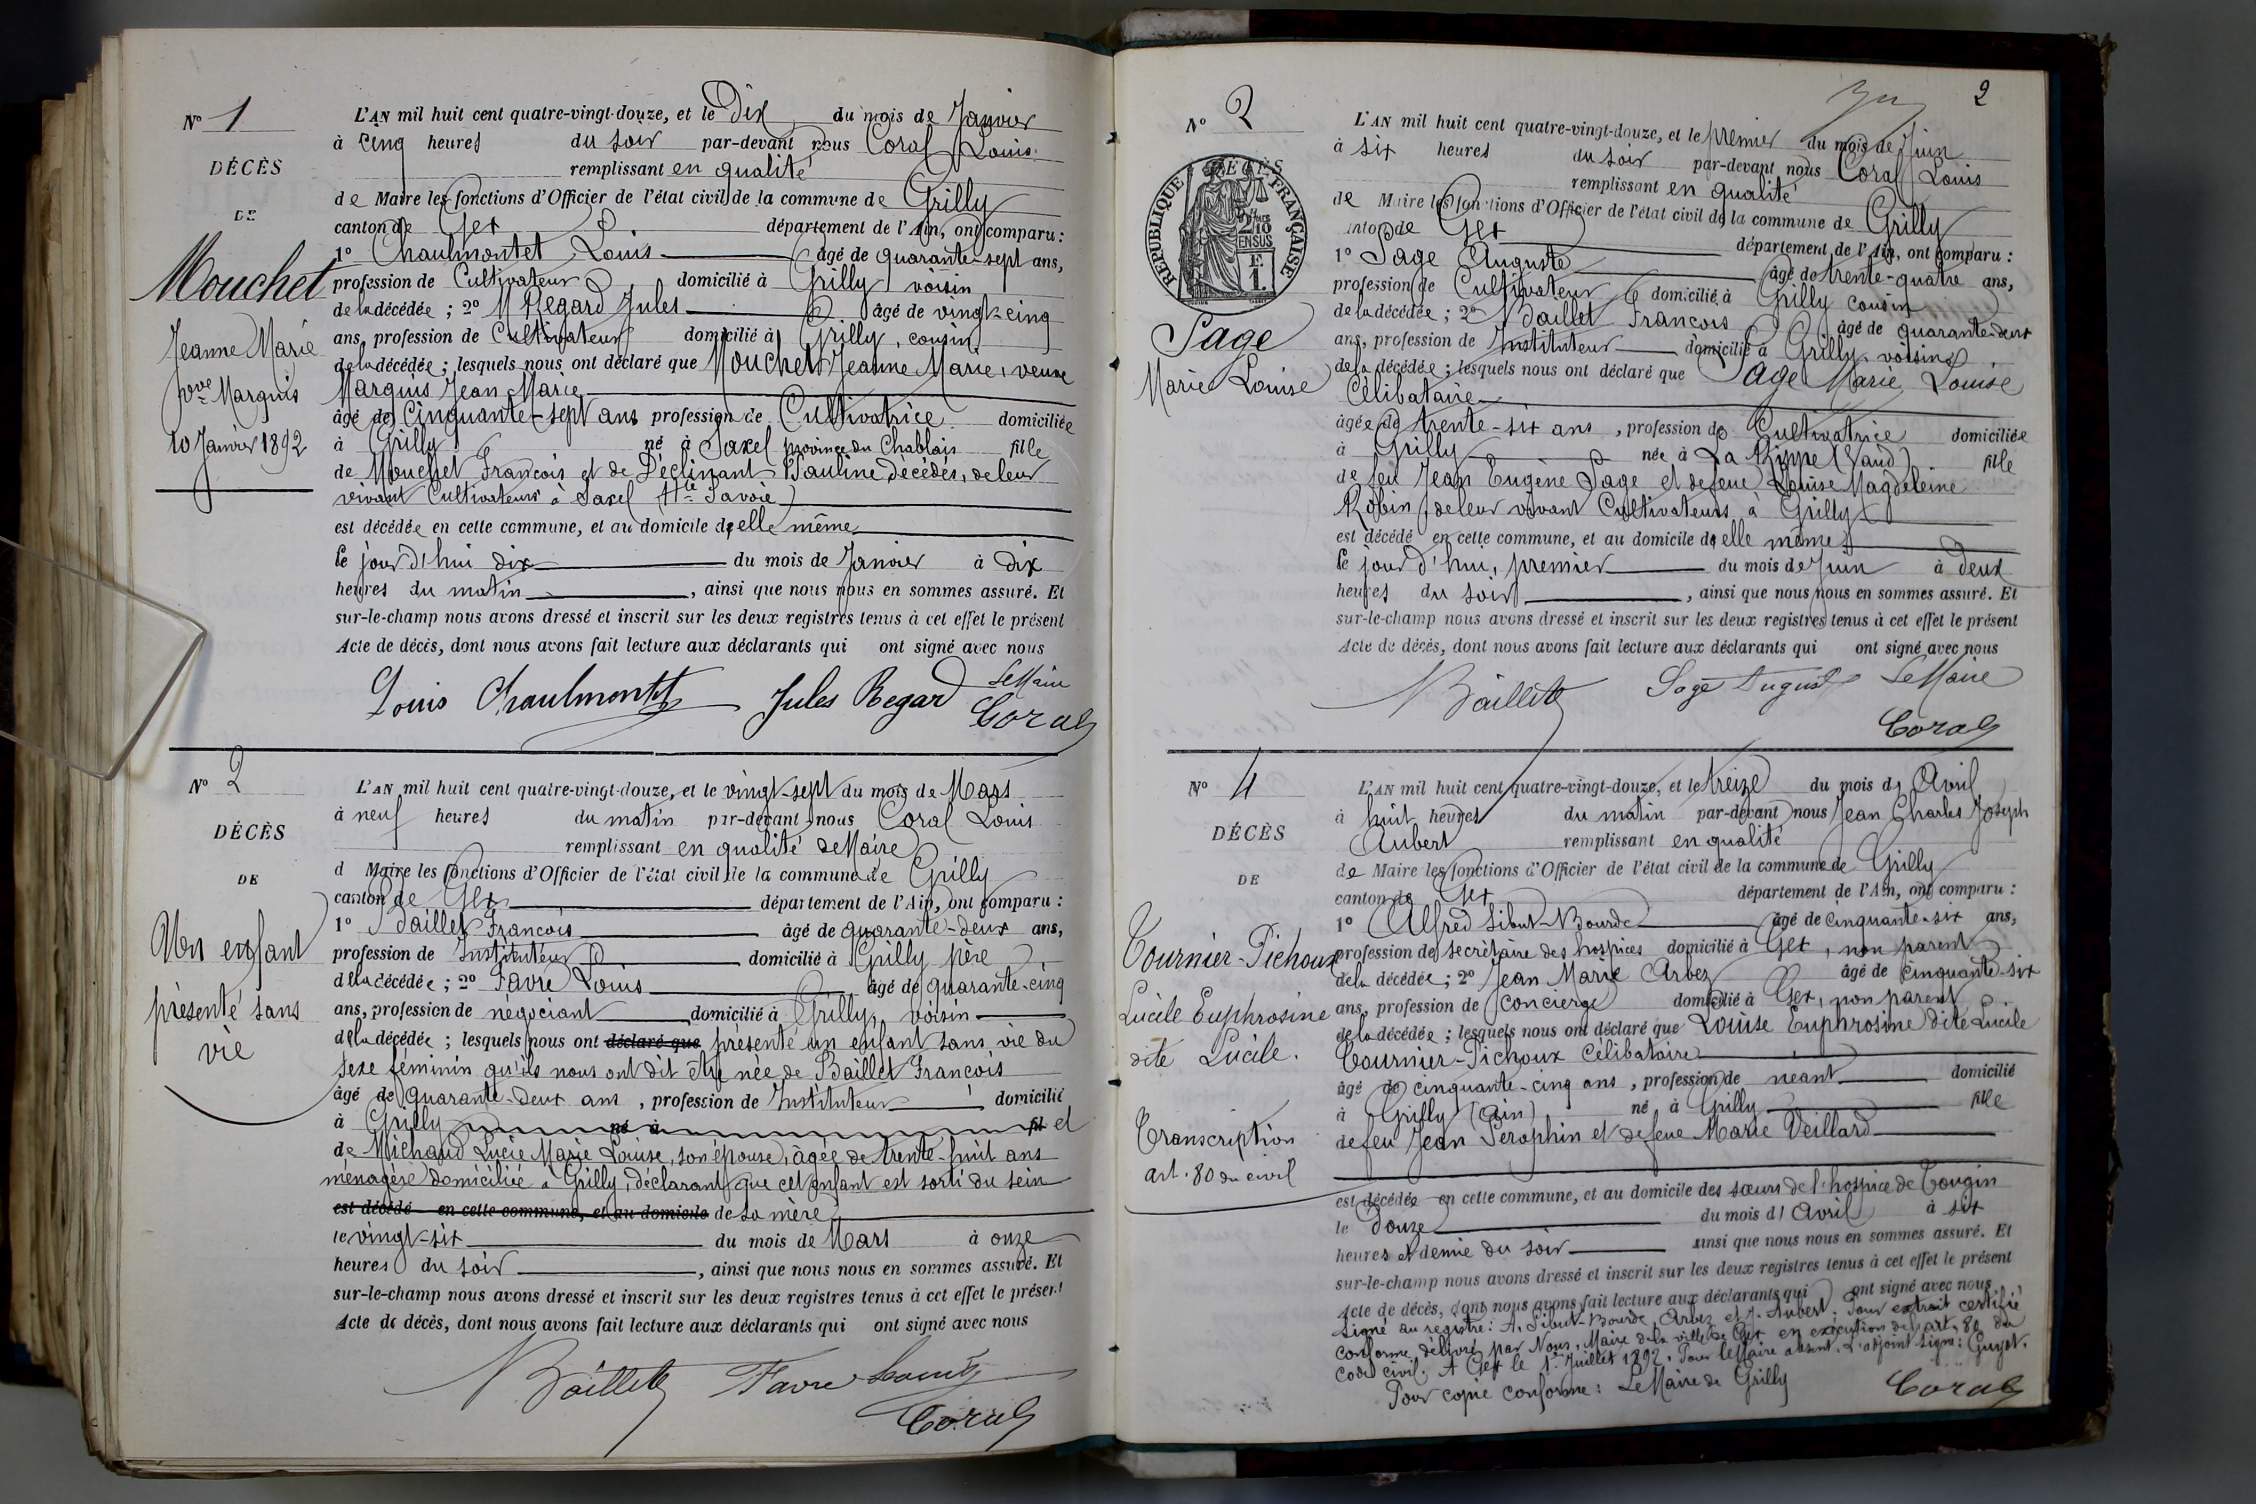 N° 1
DÉCÈS
DE
Mouchet
Jeanne Marie
vve Marquis
10 Janvier 1892
L'AN mil huit cent quatre-vingt-douze, et le Dix du mois de Janvier
à cinq heures du soir par-devant nous Coral Louis
remplissant en qualité
de Maire les fonctions d'Officier de l'état civil de la commune de Grilly
canton de Gex département de l'Ain, ont comparu :
1° Chaulmontet Louis âgé de quarante-sept ans,
profession de Cultivateur domicilié à Grilly voisin
de la décédée ; 2° Regard Jules âgé de vingt-cinq
ans, profession de Cultivateur domicilié à Grilly, cousin
de la décédée ; lesquels nous ont déclaré que Mouchet Jeanne Marie, veuve
Marquis Jean Marie
âgé de Cinquante-sept ans profession de Cultivatrice domiciliée
à Grilly né à Saxel province du Chablais fille
de Mouchet François et de Déclinant Pauline décédés, de leur
vivant Cultivateurs à Saxel (Hte Savoie)
est décédée en cette commune, et au domicile d'elle même
le jour d'hui dix du mois de Janvier à dix
heures du matin, ainsi que nous nous en sommes assuré. Et
sur-le-champ nous avons dressé et inscrit sur les deux registres tenus à cet effet le présent
Acte de décès, dont nous avons fait lecture aux déclarants qui ont signé avec nous
Louis Chaulmontet Jules Regard Le Maire
Coral
N° 2
DÉCÈS
DE
Un enfant
présenté sans
vie
L'AN mil huit cent quatre-vingt-douze, et le vingt-sept du mois de Mars
à neuf heures du matin par-devant nous Coral Louis
remplissant en qualité de Maire
d Maire les fonctions d'Officier de l'état civil de la commune de Grilly
canton de Gex département de l'Ain, ont comparu :
1° Baillet François âgé de quarante-deux ans,
profession de Instituteur domicilié à Grilly père
de la décédée ; 2° Favre Louis âgé de quarante-cinq
ans, profession de négociant domicilié à Grilly, voisin
de la décédée ; lesquels nous ont déclaré que présenté un enfant sans vie du
sexe féminin qu'ils nous ont dit être née de Baillet François
âgé de quarante-deux ans, profession de Instituteur domicilié
à Grilly né à fil et
de Michaud Lucie Marie Louise, son épouse, âgée de trente-huit ans
ménagère domiciliée à Grilly, déclarant que cet enfant est sorti du sein
est décédé en cette commune, et au domicile de sa mère
le vingt-six du mois de Mars à onze
heures du soir, ainsi que nous nous en sommes assuré. Et
sur-le-champ nous avons dressé et inscrit sur les deux registres tenus à cet effet le présent
Acte de décès, dont nous avons fait lecture aux déclarants qui ont signé avec nous
Baillet Favre Louis
Coral
2
N° 2
RÉPUBLIQUE FRANÇAISE
DÉCÈS
2/10
EN SUS
F.
1.
Sage
Marie Louise
L'AN mil huit cent quatre-vingt-douze, et le premier du mois de Juin
à six heures du soir par-devant nous Coral Louis
remplissant en qualité
de Maire les fonctions d'Officier de l'état civil de la commune de Grilly
canton de Gex département de l'Ain, ont comparu :
1° Sage Auguste âgé de trente-quatre ans,
profession de Cultivateur domicilié à Grilly cousin
de la décédée ; 2° Baillet François âgé de quarante-deux
ans, profession de Instituteur domicilié à Grilly, voisin
de la décédée ; lesquels nous ont déclaré que Sage Marie Louise
Célibataire
âgée de trente-six ans, profession de Cultivatrice domiciliée
à Grilly née à La Rippe (Vaud) fille
de feu Jean Eugène Sage et de feue Louise Magdeleine
Robin, de leur vivant Cultivateurs à Grilly
est décédé en cette commune, et au domicile d'elle même
le jour d'hui, premier du mois de Juin à deux
heures du soir, ainsi que nous nous en sommes assuré. Et
sur-le-champ nous avons dressé et inscrit sur les deux registres tenus à cet effet le présent
Acte de décès, dont nous avons fait lecture aux déclarants qui ont signé avec nous
Baillet Sage Auguste Le Maire
Coral
N° 4
DÉCÈS
DE
Tournier-Pichoux
Lucile Euphrosine
dite Lucile.
Transcription
art. 80 du civil
L'AN mil huit cent quatre-vingt-douze, et le treize du mois d'Avril
à huit heures du matin par-devant nous Jean Charles Joseph
Aubert remplissant en qualité
de Maire les fonctions d'Officier de l'état civil de la commune de Grilly
canton de Gex département de l'Ain, ont comparu :
1° Alfred Sibut-Bourde âgé de cinquante-six ans,
profession de secrétaire des hospices domicilié à Gex, non parent
de la décédée ; 2° Jean Marie Arbez âgé de cinquante-six
ans, profession de concierge domicilié à Gex, non parent
de la décédée ; lesquels nous ont déclaré que Louise Euphrosine dite Lucile
Tournier-Pichoux célibataire
âgé de cinquante-cinq ans, profession de néant domicilié
à Grilly (Ain) né à Grilly fille
de feu Jean Séraphin et de feue Marie Veillard
est décédée en cette commune, et au domicile des sœurs de l'hospice de Tougin
le Douze du mois d'Avril à six
heures et demie du soir ainsi que nous nous en sommes assuré. Et
sur-le-champ nous avons dressé et inscrit sur les deux registres tenus à cet effet le présent
Acte de décès, dont nous avons fait lecture aux déclarants qui ont signé avec nous.
Signé au registre : A. Sibut-Bourde, Arbez et J. Aubert. Pour extrait certifié
conforme délivré par Nous, Maire de la ville de Gex en exécution de l'art. 80 du
code civil. A Gex le 1er Juillet 1892. Pour le Maire absent. L'adjoint signé : Guyot.
Pour copie conforme : Le Maire de Grilly Coral